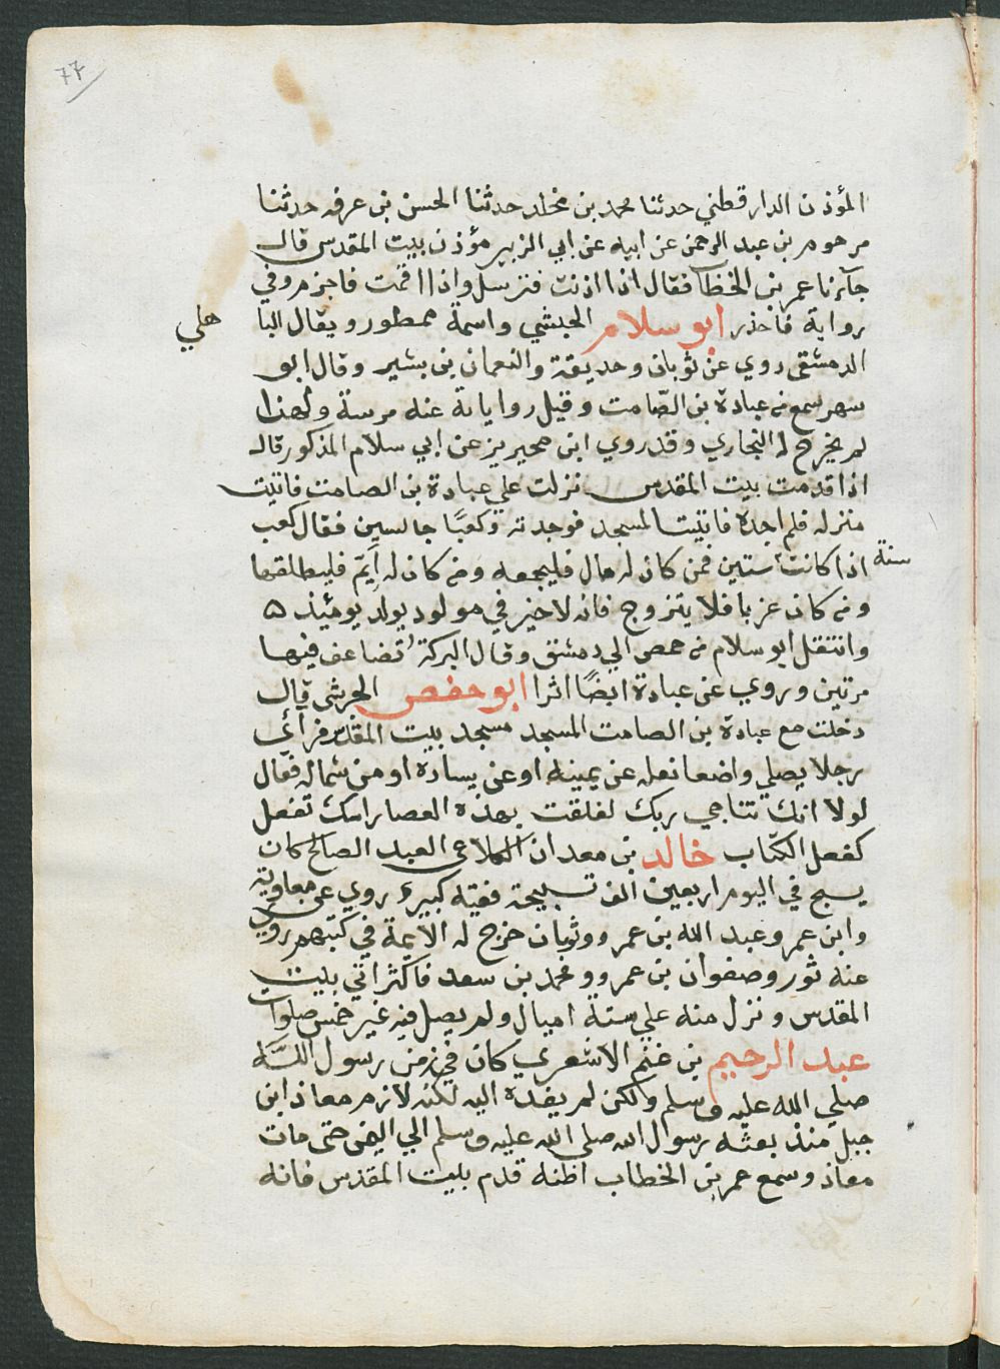 ٧٧
المؤذن الدارقطني حدثنا محمد بن مخلد حدثنا الحسن بن عرفه حدثنا
مرحوم بن عبد الرحمن عن ابيه عن ابي الزبير مؤذن بيت المقدس قال
جآءنا عمر بن الخطاب فقال اذا اذنت فترسل واذا اقمت فاجزم وفي
رواية فاحذر ابو سلام الحبشي واسمة ممطور ويقال البا
هلي
الدمشقى روي عن ثوبان وحديقة والنعمان بن بشير وقال ابو
سهر سمع من عبادة بن الصّامت وقيل رواياته عنه مرسة ولهذا
لم يخرج له البخاري وقد روي ابن محيريز عن ابي سلام المذكور قال
اذا قدمت بيت المقدس نزلت علي عبادة بن الصامت فاتيت
منزله فلم اجده فاتيت المسجد فوجدته وكعبًا جالسين فقال كعب
اذا كانت سنة ستين فمن كان له مال فليجمعه ومن كان له ايّم فليطلقها
ومن كان عزبا فلا يتزوج فانه لاخير في مولود يولد يومئذ ه
وانتقل ابو سلام من حمص الي دمشق وقال البركة تضاعف فيها
مرتين وروي عن عبادة ايضًا اثرا ابو حفص الحرشى قال
دخلت مع عبادة بن الصامت المسجد مسجد بيت المقدس فرأي
رجلا يصلي واضعا نعله عن يمينه او عن يساره او من شماله فقال
لولا انك تناجي ربك لفلقت بهذه العصا راسك تفعل
كفعل الكتاب خالد بن معدان الكلاعى العبد الصالح كان
يسبح في اليوم اربعين الف تسبيحة فقيه كبير روي عن معاوية
وابن عمر وعبد الله بن عمرو وثوبان خرج له الايمة في كتبهم روي
عنه ثور وصفوان بن عمرو ومحمد بن سعد فاكثر اتي بيت
المقدس ونزل منه علي ستة اميال ولم يصل فيه غير خمس صلوات
عبد الرحيم بن غنم الاشعري كان في زمن رسول الله
صلي الله عليه وسلم ولكن لم يفد اليه لكنه لازم معاذ ابن
جبل منذ بعثه رسول الله صلى الله عليه وسلم الي اليمن حتى مات
معاذ وسمع عمر بن الخطاب اظنه قدم بيت المقدس فانه